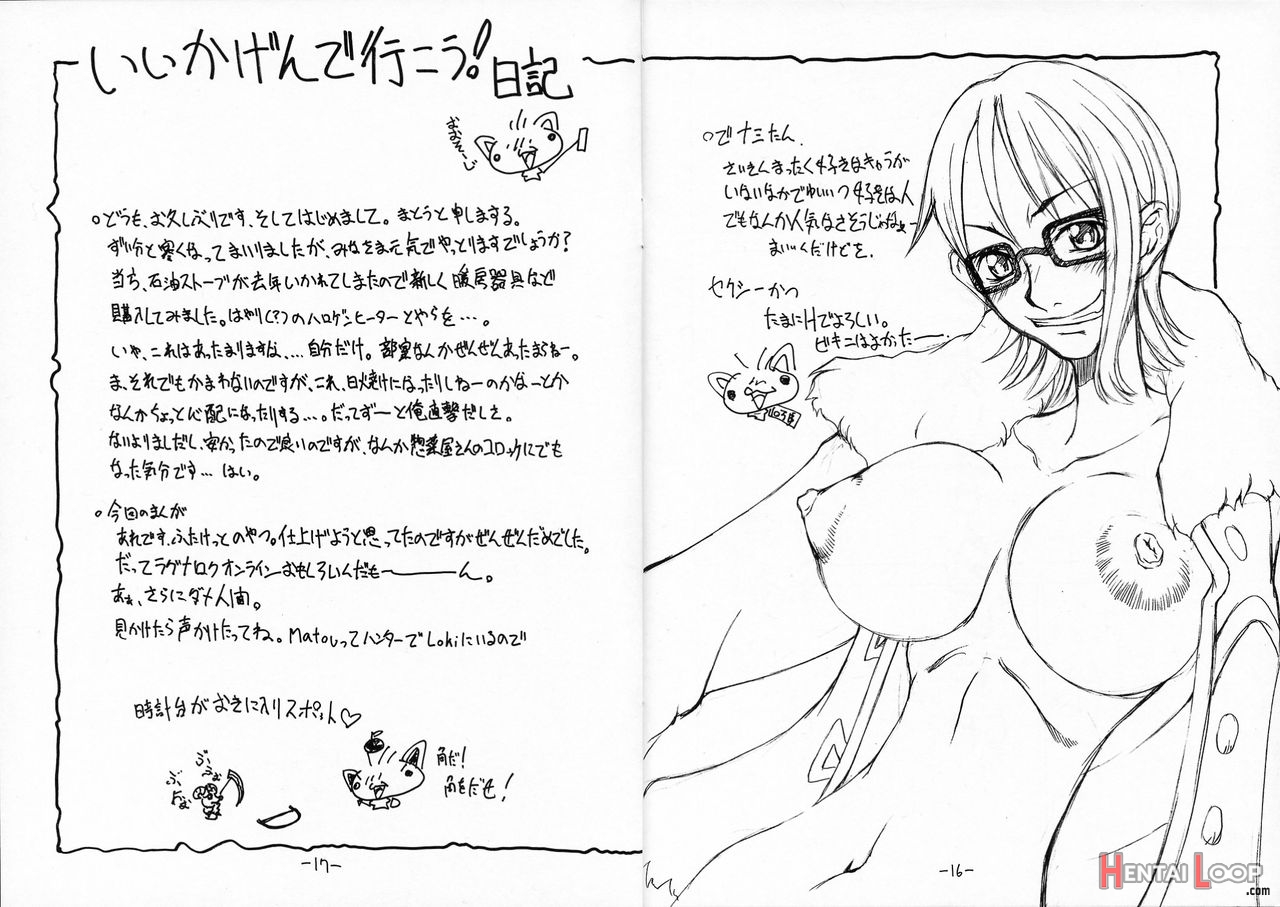 いいかげんで行こう!日記
むおそーじ
○どうも、お久しぶりです、そしてはじめまして。まとうと申しまする。
ずい分と寒くなってまいりましたが、みなさま元気でやっとりますでしょうか?
当ち、石油ストーブが去年いかれてしまたので新しく暖房器具など
購入してみました。はやり(?)つのハロゲンヒーターとやらを…。
いや、これはあったまりますな、…自分だけ。部室なんかぜんぜんあったまらねー。
ま、それでもかまわないのですが、これ、日焼けになったりしねーのかなーとか
なんかちょっと心配になったりする…。だってずーと俺直撃だしさ。
ないよりましだし、安かったので良いのですが、なんか惣菜屋さんのコロッケにでも
なった気分です… はい。
○今回のまんが
あれです、ふたけっとのやつ。仕上げようと思ってたのですがぜんぜんだめでした。
だってラグナロクオンラインおもしろいんだも〜ん。
あぁ、さらにダメ人間。
見かけたら声かけたってね。MatouってハンターでLokiにいるので
時計台がおきに入りスポット♡
角だ!
角をだせ!
-17-
○でナミたん、
さいきんまったく好きな
いないなかでゆいいつ好きな人
でもなんか人気なさそうじゃね
まいーくだけどを。
セクシーかつ
たまにHでよろしい。
ビキニはよかったー
-16-
HENTAI LOOP
.com